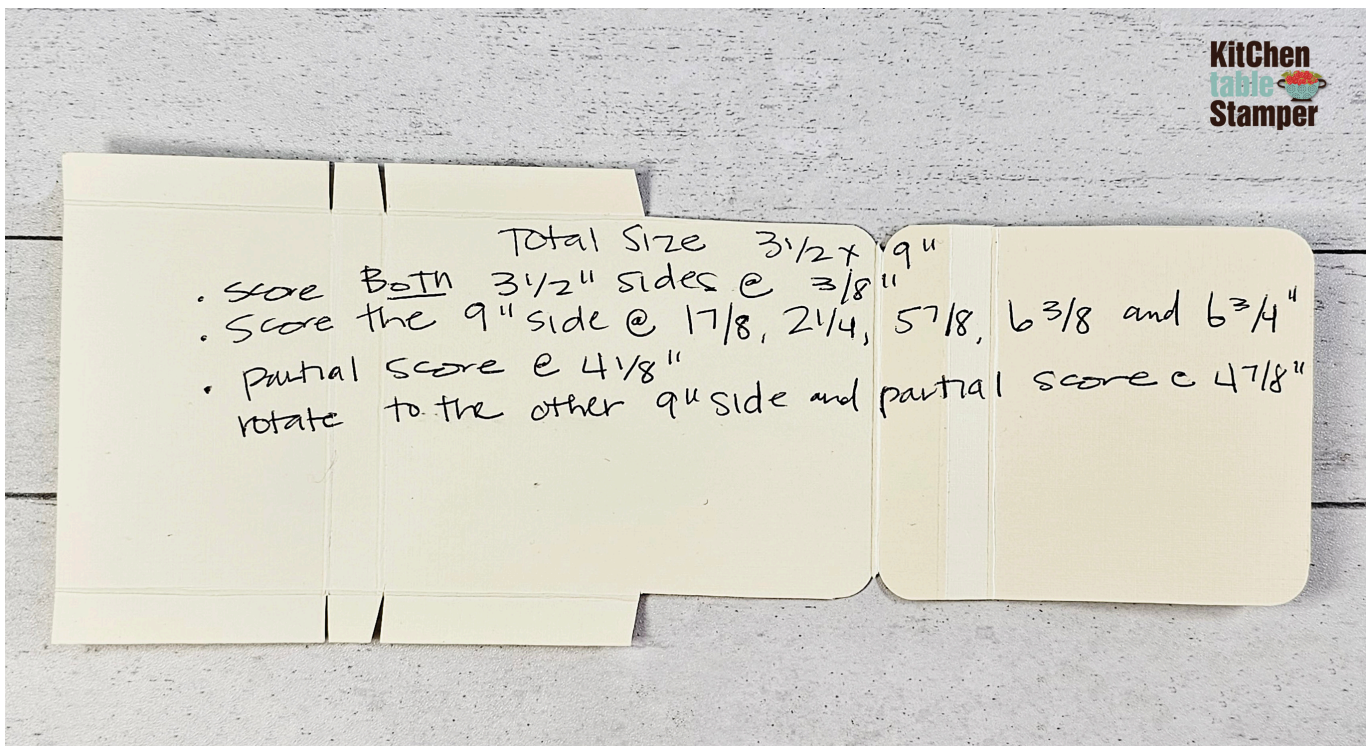 KitChen
table
Stamper
Total Size 3 1/2 x 9"
• Score BOTH 3 1/2" sides @ 3/8"
• Score the 9" side @ 1 7/8, 2 1/4, 5 7/8, 6 3/8 and 6 3/4"
• partial score @ 4 1/8"
rotate to the other 9" side and partial score @ 4 7/8"